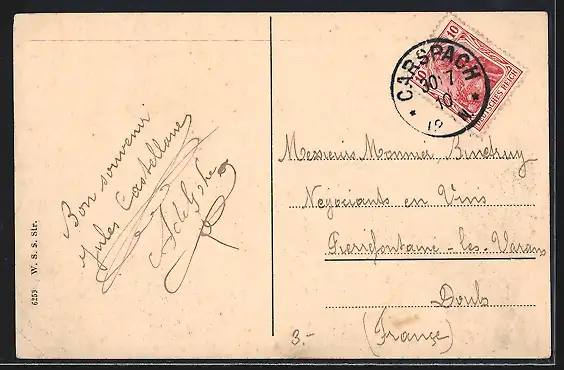 Bon souvenir
Jules Castellane
6259 W. S. S. Str.
CARSPACH
30 7
10
12
N
10
10
DEUTSCHES REICH
Messieurs Monnier
Negociants en Vins
Pierrefontaine-les-Varans
Doubs
(France)
3.-